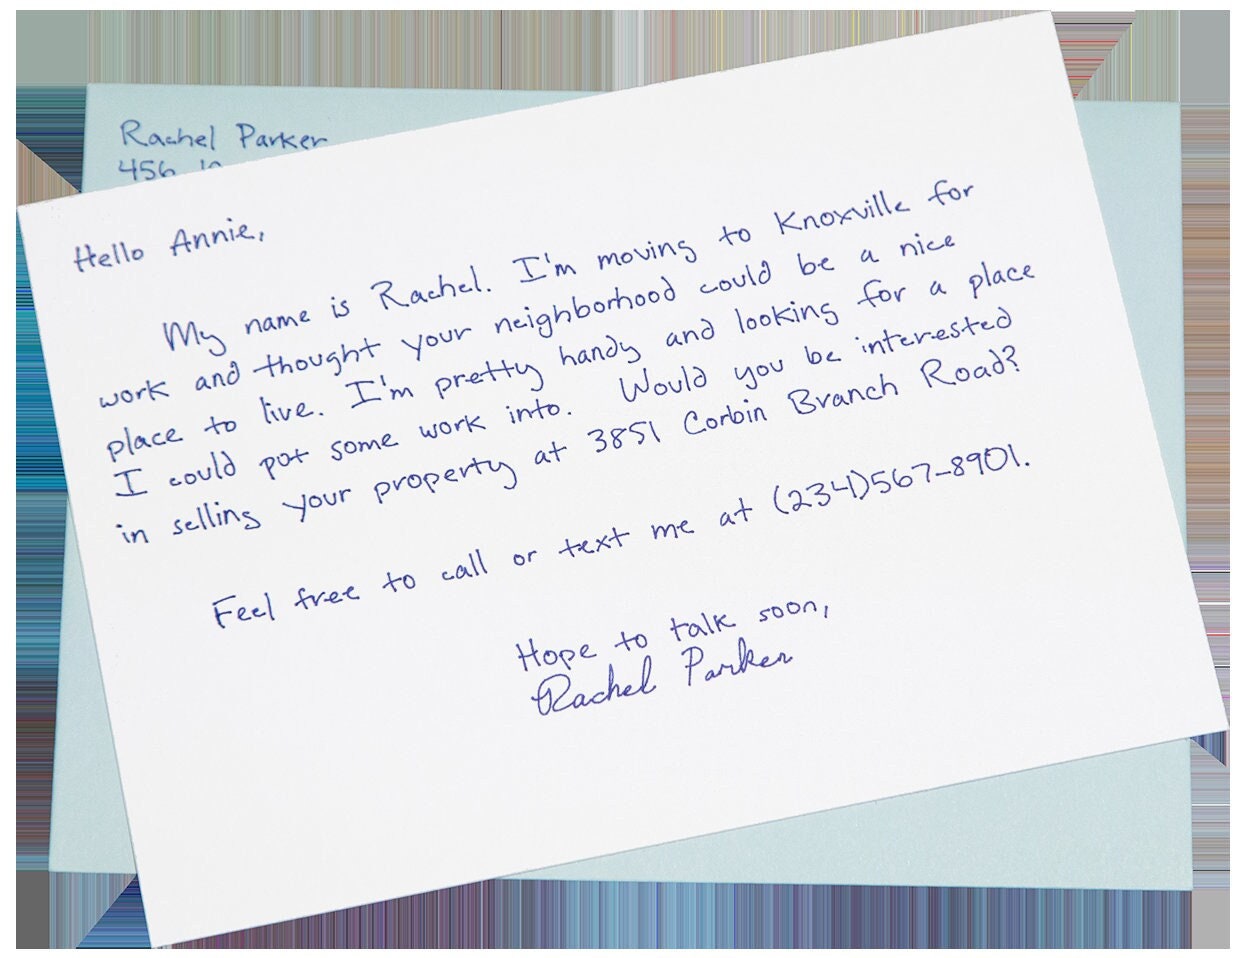 Rachel Parker
456
Hello Annie,
My name is Rachel. I'm moving to Knoxville for
work and thought your neighborhood could be a nice
place to live. I'm pretty handy and looking for a place
I could put some work into. Would you be interested
in selling your property at 3851 Corbin Branch Road?
Feel free to call or text me at (234)567-8901.
Hope to talk soon,
Rachel Parker